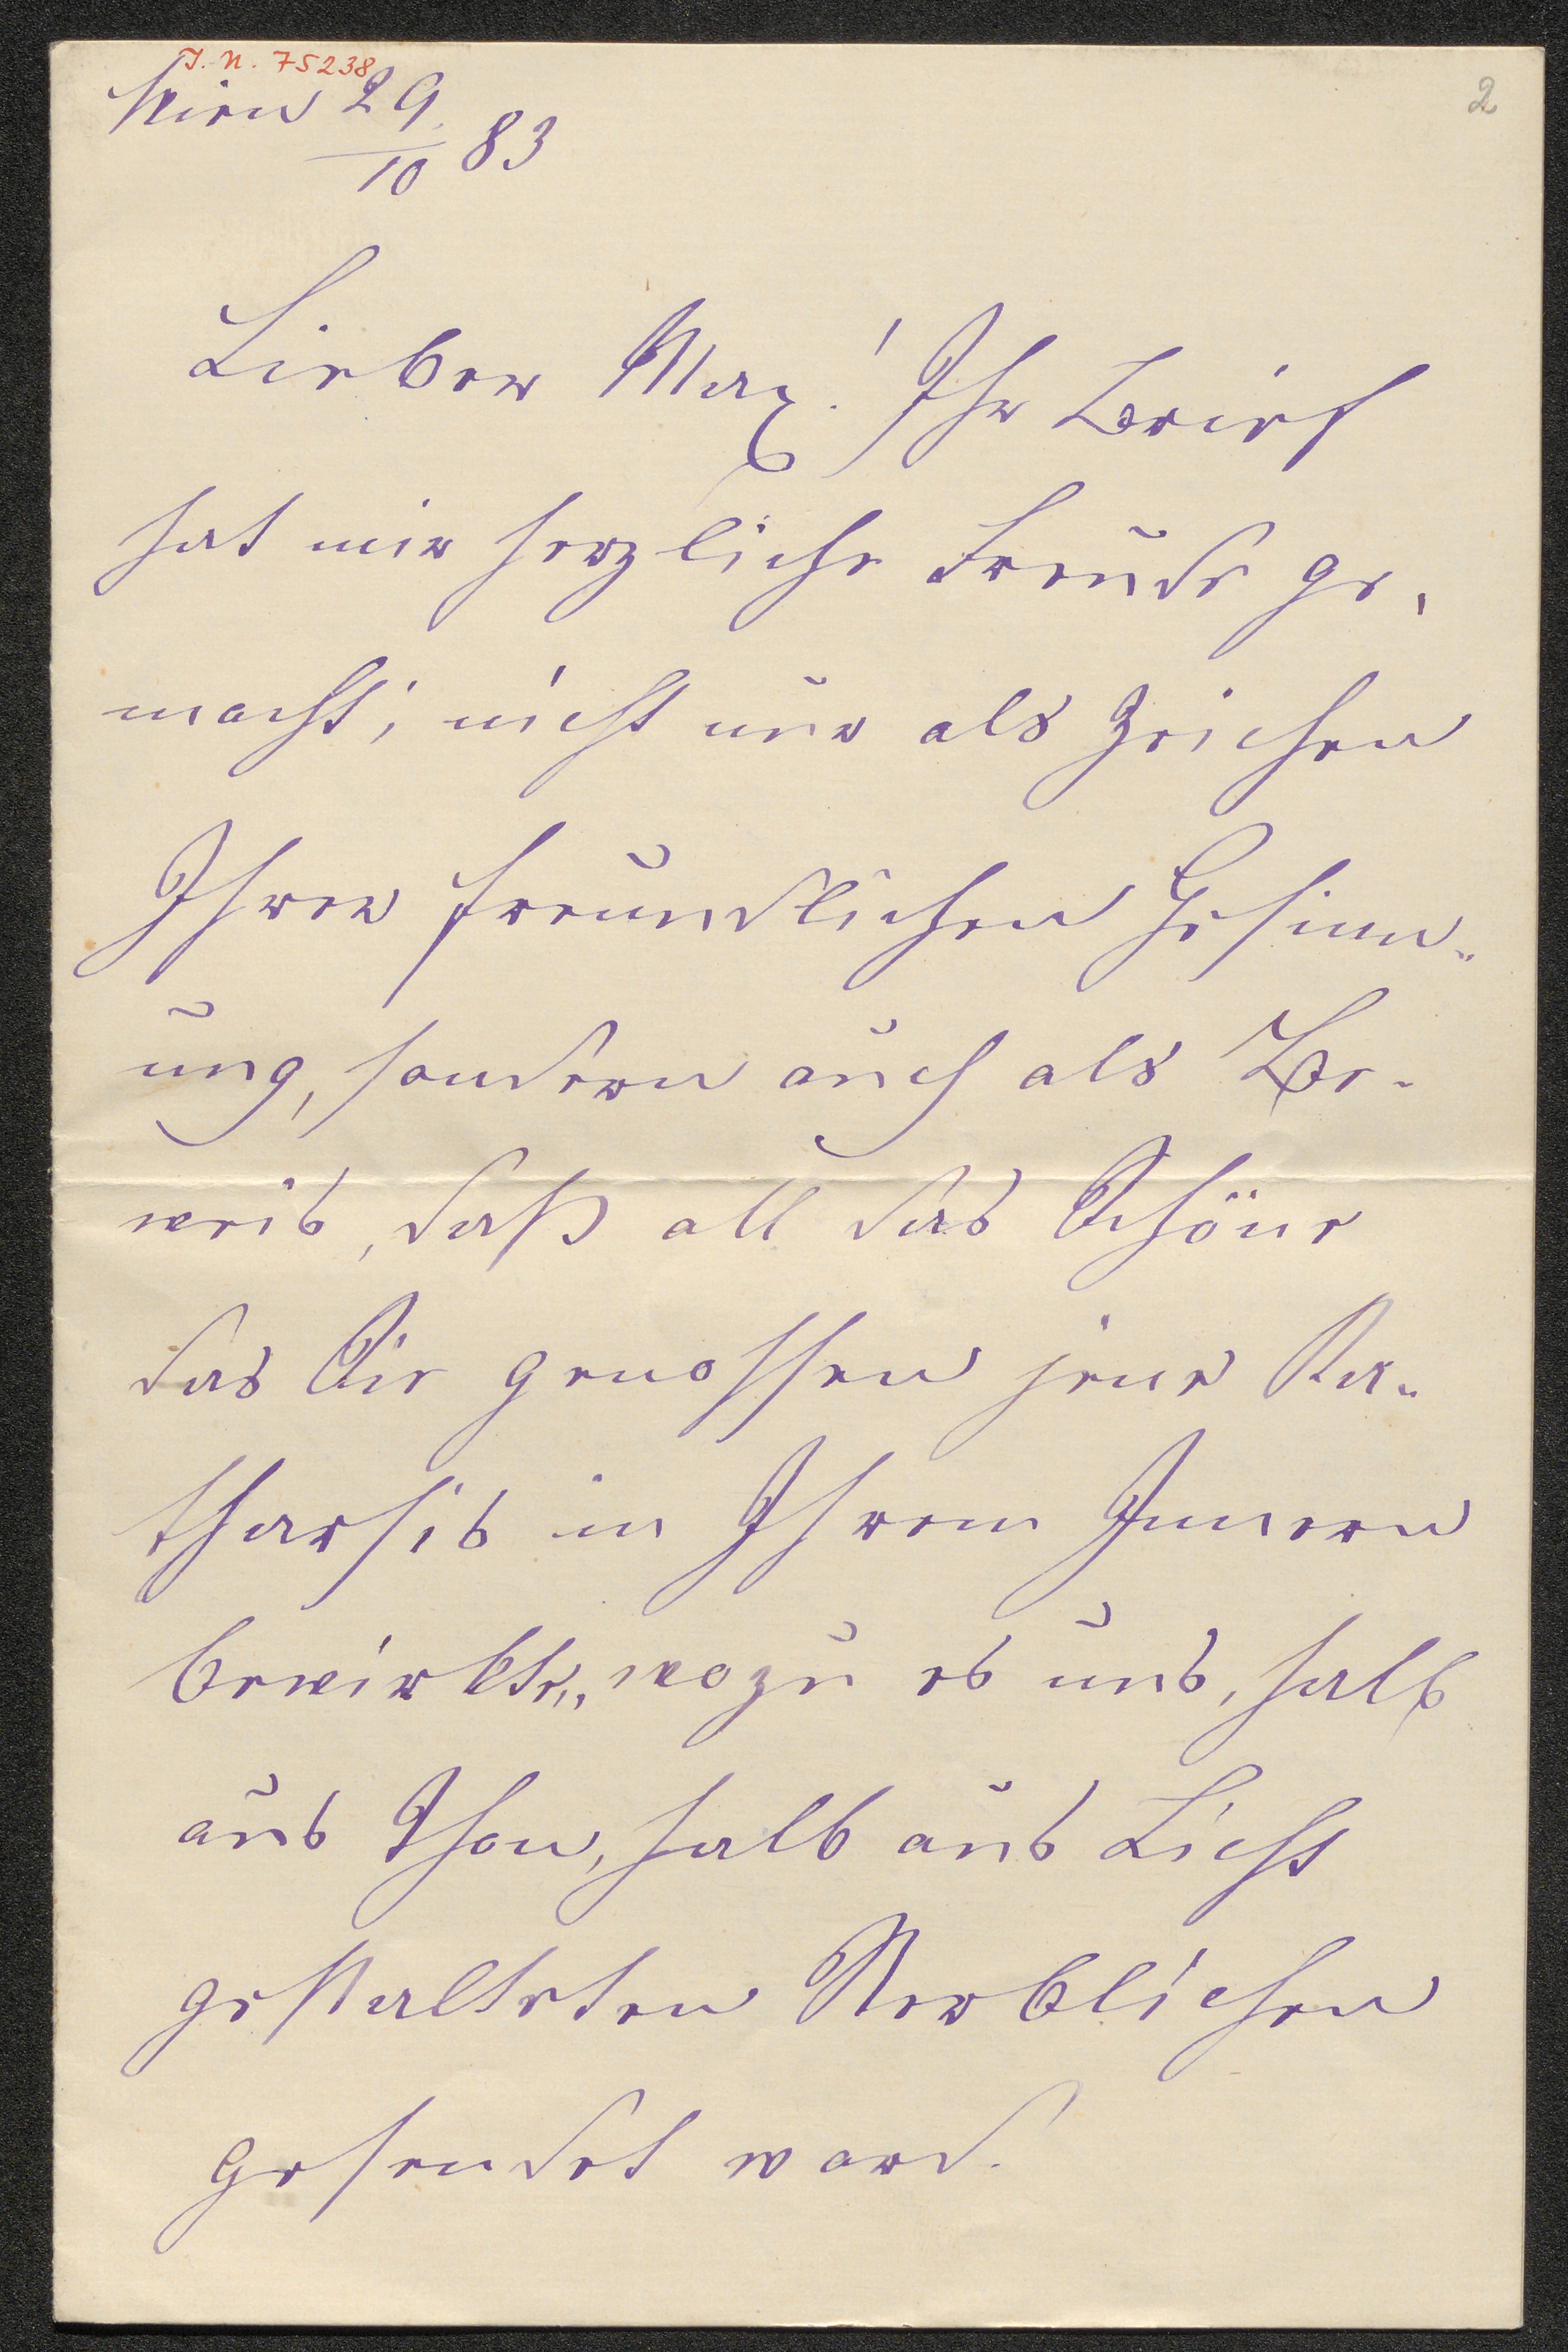 I. N. 75238
2
Wien 29/10 83
Lieber Max! Ihr Brief
hat mir herzliche Freude ge-
macht; nicht nur als Zeichen
Ihrer freundlichen Gesinn-
ung, sondern auch als Be-
weis, daß all das Schöne
das Sie genossen jene Ka-
tharsis in Ihrem Innern
bewirkte, wozu es uns, halb
aus Thon, halb aus Licht
gestalteten Sterblichen
gesendet ward.